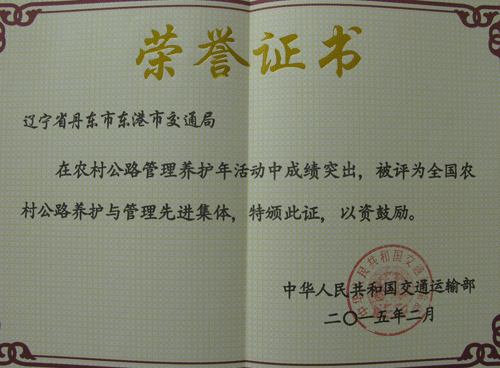 荣誉证书
辽宁省丹东市东港市交通局
在农村公路管理养护年活动中成绩突出，被评为全国农
村公路养护与管理先进集体，特颁此证，以资鼓励。
中华人民共和国交通运输部
二〇一五年二月